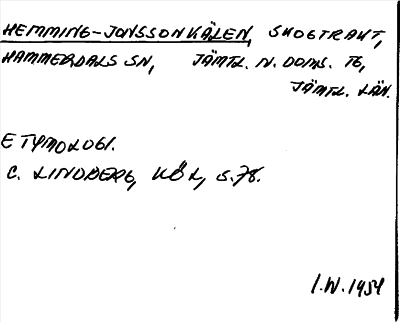 HEMMING-JONSSONKÄLEN, SKOGTRAKT,
HAMMERDALS SN, JÄMTL. N. DOMS. TG,
JÄMTL. LÄN.
ETYMOLOGI.
C. LINDBERG, KÖL, S.78.
I.W. 1954